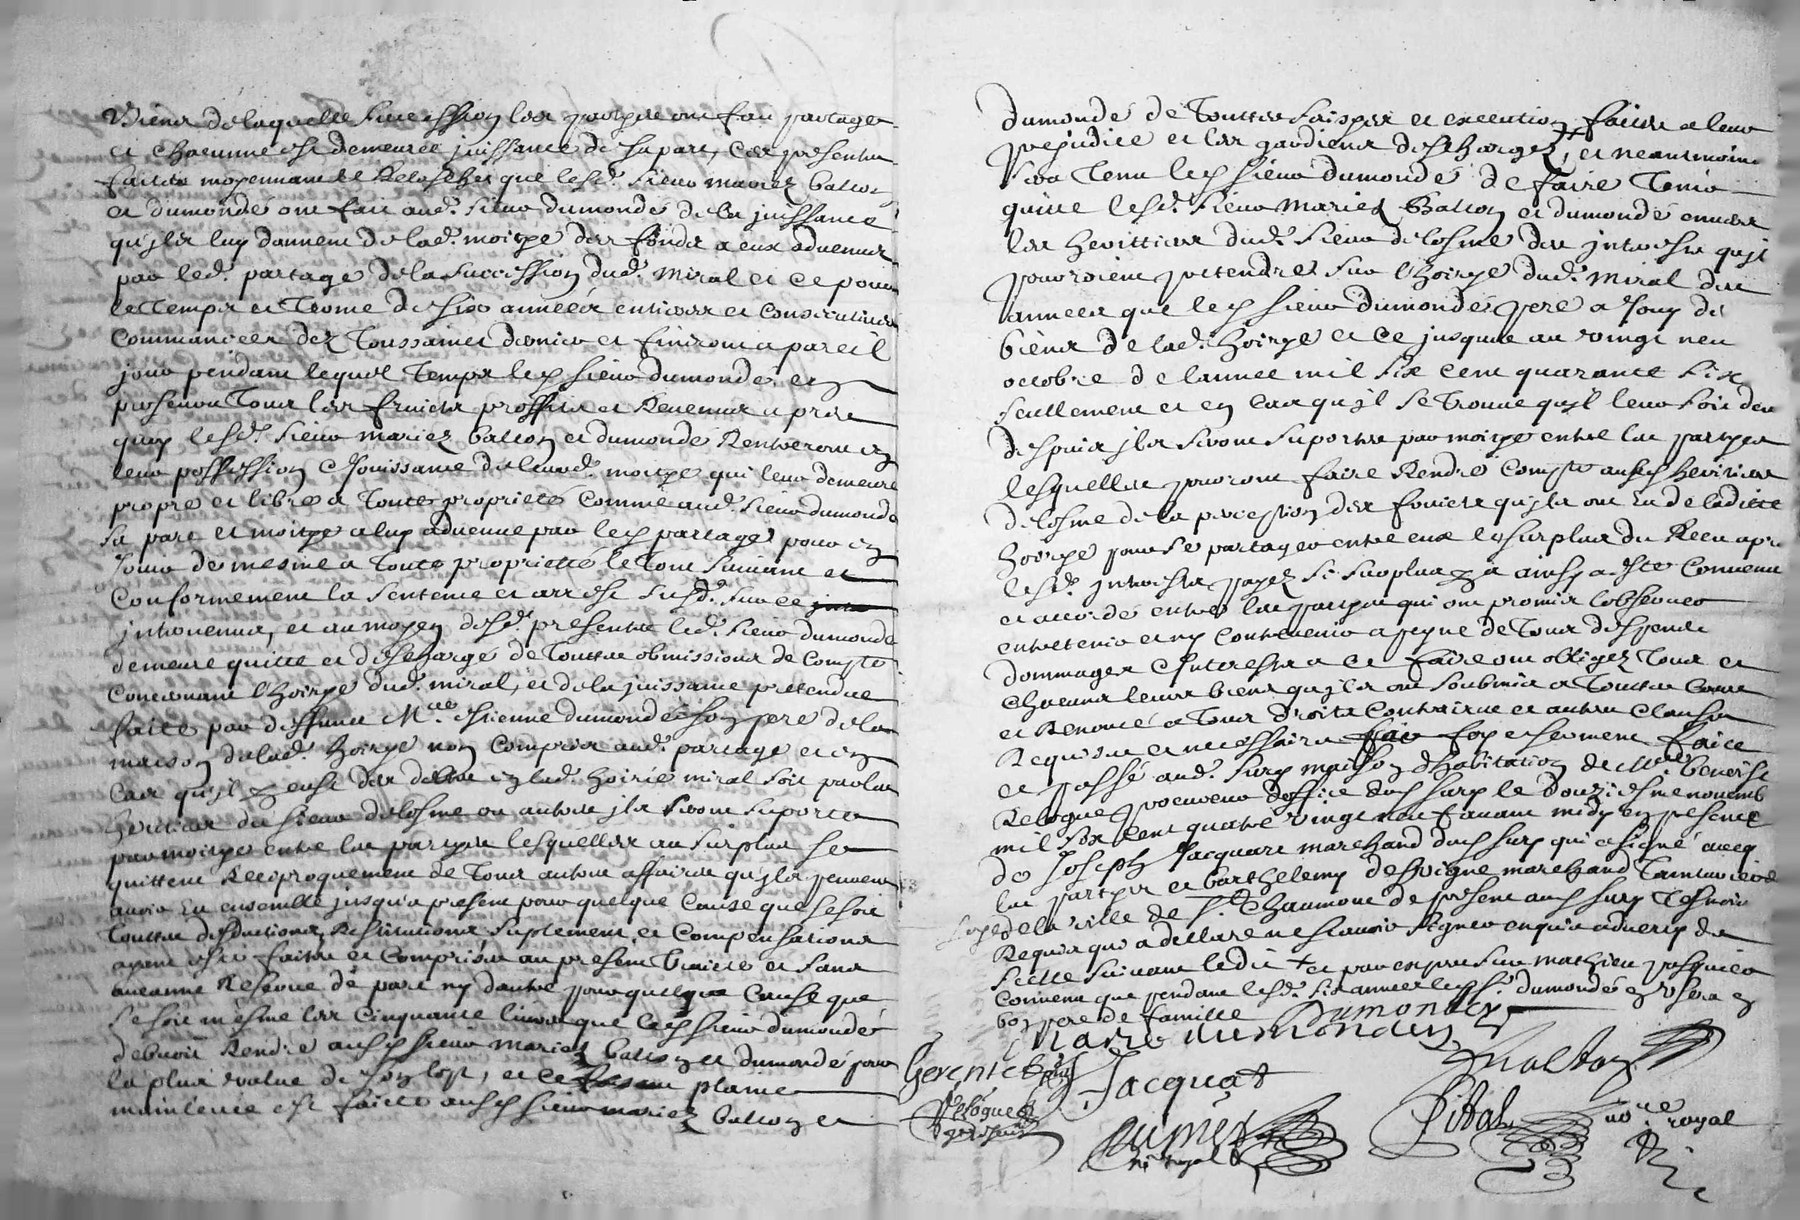 biens de laquelle succession les partyes ont fait partage
et chacunne est demeurée juissante de sa part, Ces presentes
faites moyennant et Relaschet que lesd. sieur mariez balton
et dumonde ont fait aud. sieur dumonde de la juissance
qu'jls luy donnent de lad. moitye des fonds a eux advenus
par led. partage de la succession dud. miral et ce pour
le temps et terme de six années entieres et consecutives
Commancées dez toussainct dernier et finiront a pareil
jour pendant lequel temps led sieur dumonde en
prose tous les fruicts proffits et Revenus apres
quoy lesd. sieur mariez balton et dumonde Rentreront en
leur possession & Jouissance de leurd. moitye qui leur demeure
propre et libre a toutte proprieté comme aud. sieur dumonde
sa part et moitye a luy advenue par led partage pour en
Jouir de mesme a toutte proprietté le tout suivant et
Conformement la sentence et arrest susd. sur ce
intervenus, et au moyen desd. presentes led. sieur dumonde
demeure quitte et deschargé de touttes obmissions de compte
Concernant l'hoirye dud. miral, et de la juissance pretendue
faite par deffunct Mre estienne dumonde son pere de la
maison de lad. hoirye non comprise aud. partage et en
Cas qu'jl y eust des debtes en lad. hoirie miral soit par les
heritiers du sieur delosme ou autres jls seront suportés
par moitye entre les partyes lesquelles au surplus se
quittent Reciproquement de tous autres affaires qu'jls peuvent
avoir eu ensemble jusqu'a present pour quelque cause que se soit
touttes desductions, Restitutions suplement et Compensations
ayant esté faites et comprises au present traicté et sans
aucunne Reserve de part ny d'autre pour quelque cause que
se soit mesme les cinquante livres que led sieur dumonde
debvoit Rendre ausd sieur mariez balton et dumonde pour
la plus value de son lot, et ce plaine
mainlevée est faicte ausd sieur mariez balton et
dumonde de touttes saisyes et execution faites a leur
prejudice et les gardiens deschargez, et neantmoins
sera tenu led sieur dumonde de faire tenir
quitte lesd. sieur mariez balton et dumonde envers
les herittiers dud. sieur delosme des interests qu'jl
pourroient pretendre sur l'hoirye dud. miral des
années que led sieur dumonde pere a Jouy de
biens de lad. hoirye et ce jusques au vingt neu
octobre de l'année mil six cent quarante six
seullement et en cas qu'jl se trouve qu'jl leur soit deu
despuis jls seront suportes par moitye entre les partyes
lesquelles pourront faire Rendre compte ausd heritiers
delosme de la perception des fruicts qu'jls ont eu de ladicte
hoirye pour se partager entre eux le surplus du Receu apres
lesd. interests payez si surplus y a ainsy a esté convenu
et accordé entre les partyes qui ont promis l'observer
entretenir et ny contrevenir a peyne de tous despens
dommages & Interests a ce faire ont obligez tous et
chacuns leurs biens qu'jls ont soubmis a touttes cours
et Renoncé a tous droits contraires et autres clauses
Requises et necessaires foy et serment faict
et passé aud. sury maison d'habitation de Me benoist
Relogue procureur d'office dud sury le douziesme novemb
mil six cent quatre vingt neuf avant midy en presence
de Joseph Jacquare marchand dud sury qui a signé avecq
les partyes et barthelemy desvigne marchand
de la ville de St Chaumont de present aud sury tesmoin
Requis qui a declaré ne scavoir signer enquis adverty du
scelle suivant ledit + et par expres sieur mathieu
Convenu que pendant lesd. six années led sr. dumonde en usera en
bon pere de famille Dumonde
Marie dumonden
balton
Gerentet Jacquat
Relogue
Pitat no.re royal